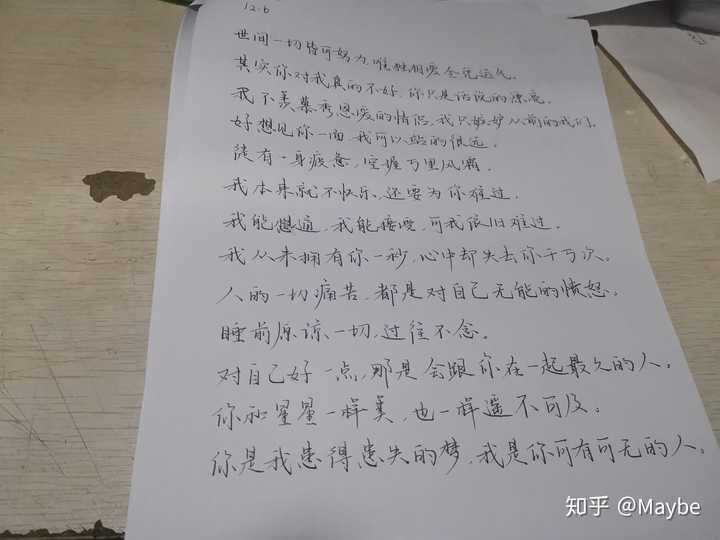 12.6
世间一切皆可努力,唯独相爱全凭运气。
其实你对我真的不好,你只是话说的漂亮。
我不羡慕秀恩爱的情侣,我只嫉妒从前的我们。
好想见你一面,我可以站的很远。
徒有一身疲惫,空握万里风霜。
我本来就不快乐,还要为你难过。
我能想通,我能接受,可我依旧难过。
我从未拥有你一秒,心中却失去你千万次。
人的一切痛苦,都是对自己无能的愤怒。
睡前原谅一切,过往不念。
对自己好一点,那是会跟你在一起最久的人。
你和星星一样美,也一样遥不可及。
你是我患得患失的梦,我是你可有可无的人。
知乎 @Maybe